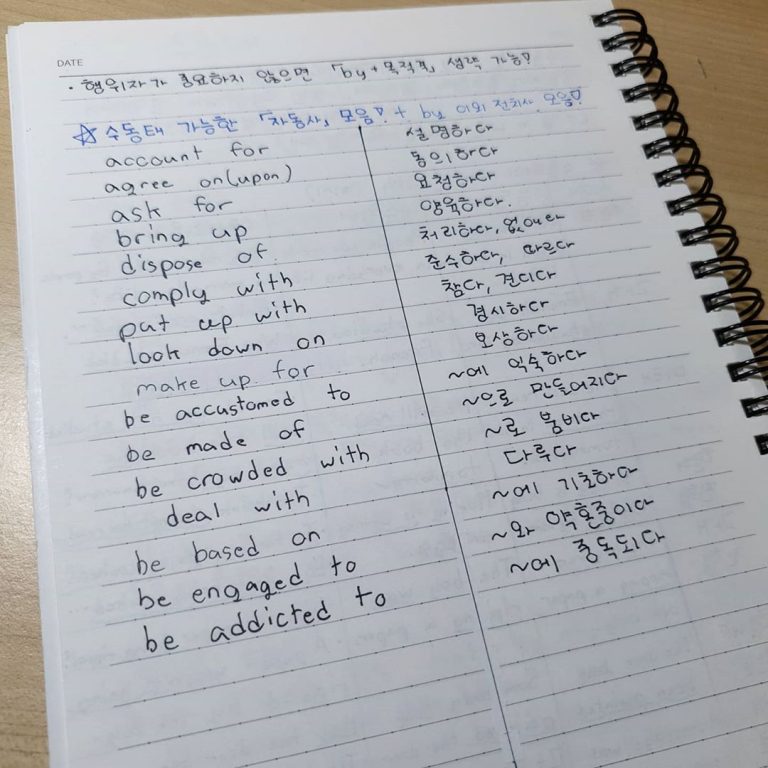 DATE
· 행위자가 중요하지 않으면 「by+목적격」 생략 가능!
☆ 수동태 가능한 「자동사」 모음! + by 이외 전치사 모음!
account for 설명하다
agree on(upon) 동의하다
ask for 요청하다
bring up 양육하다.
dispose of 처리하다, 없애다
comply with 준수하다, 따르다
put up with 참다, 견디다
look down on 경시하다
make up for 보상하다
be accustomed to ~에 익숙하다
be made of ~으로 만들어지다
be crowded with ~로 붐비다
deal with 다루다
be based on ~에 기초하다
be engaged to ~와 약혼중이다
be addicted to ~에 중독되다